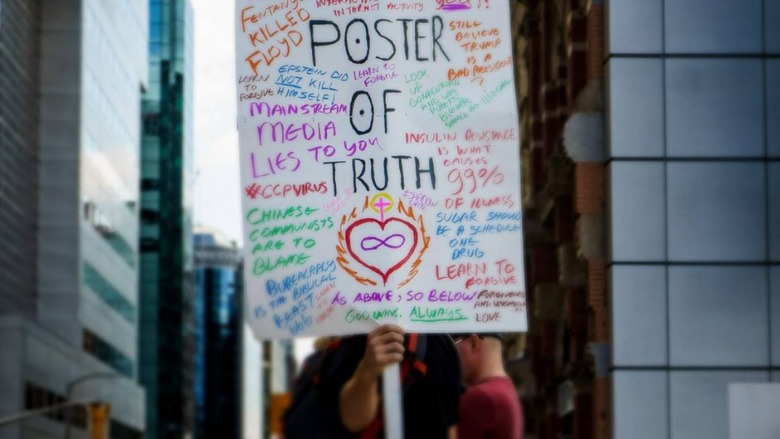 FENTANYL
KILLED
FLOYD
INTERNET ACTIVITY
STILL
BELIEVE
TRUMP
IS A
BAD PRESIDENT?
POSTER
OF
TRUTH
EPSTEIN DID
NOT KILL
HIMSELF
LEARN TO
FORGIVE
LEARN TO
FORGIVE
LOOK
UP
MAINSTREAM
MEDIA
LIES TO YOU
#CCPVIRUS
CHINESE
COMMUNISTS
ARE TO
BLAME
BUREAUCRACY
IS THE BIBLICAL
BEAST
666
LEARN
TO
INSULIN RESISTANCE
IS WHAT
CAUSES
99%
OF ILLNESS
SUGAR SHOULD
BE A SCHEDULE
ONE
DRUG
LEARN TO
FORGIVE
AS ABOVE, SO BELOW
GOD WINS. ALWAYS
FORGIVENESS
AND
LOVE